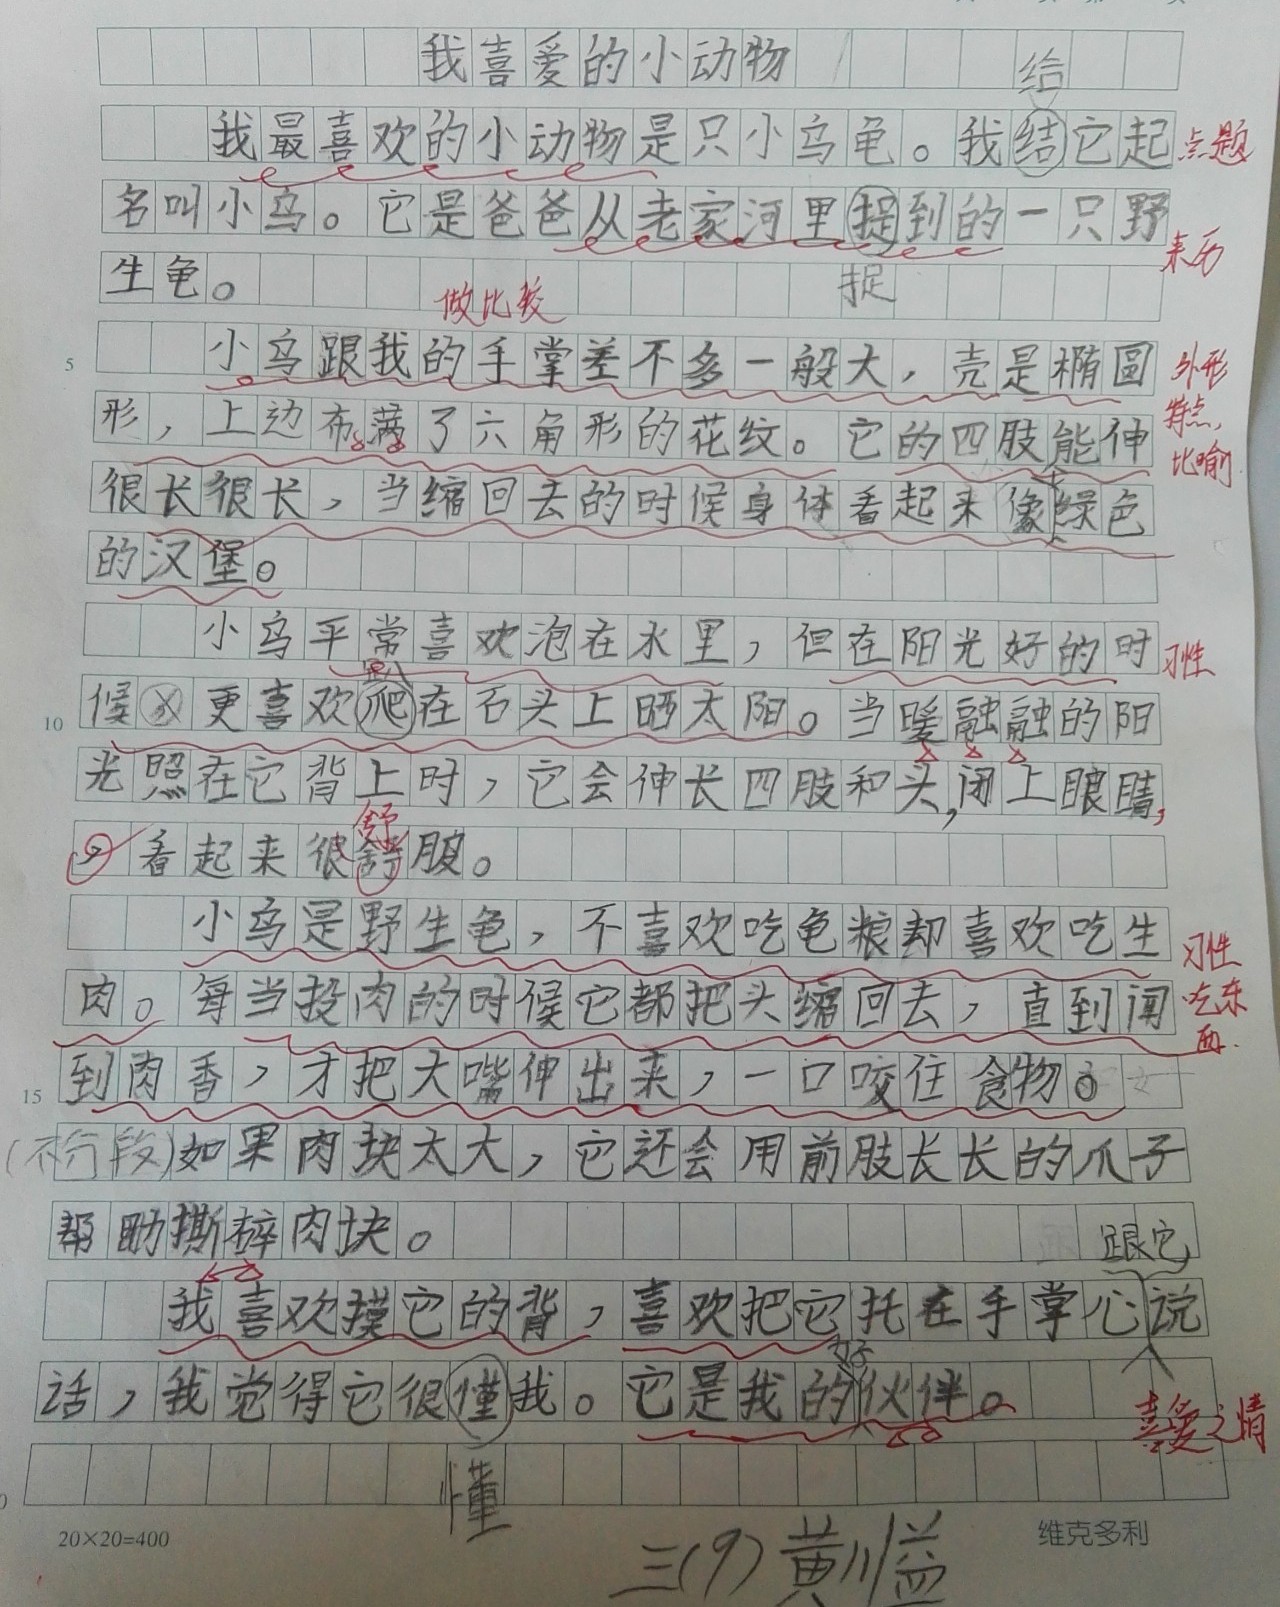 我喜爱的小动物
给
我最喜欢的小动物是只小乌龟。我结它起 点题
名叫小乌。它是爸爸从老家河里捉到的一只野 来历
生龟。
捉
做比较
5 小乌跟我的手掌差不多一般大，壳是椭圆 外形
形，上边布满了六角形的花纹。它的四肢能伸 特点，
很长很长，当缩回去的时候身体看起来像绿色 比喻
的汉堡。
小乌平常喜欢泡在水里，但在阳光好的时 习性
趴
10 候 更喜欢爬在石头上晒太阳。当暖融融的阳
光照在它背上时，它会伸长四肢和头，闭上眼睛，
舒
，看起来很舒服。
小乌是野生龟，不喜欢吃龟粮却喜欢吃生 习性
肉。每当投肉的时候它都把头缩回去，直到闻 吃东
西.
15 到肉香，才把大嘴伸出来，一口咬住食物。
(不分段)如果肉块太大，它还会用前肢长长的爪子
帮助撕碎肉块。
跟它
我喜欢摸它的背，喜欢把它托在手掌心说
好
话，我觉得它很懂我。它是我的伙伴。
喜爱之情
懂
20×20=400 维克多利
三(9)黄川益